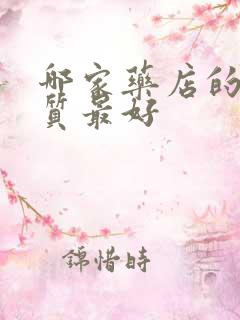 哪家藥店的
質最好
錦惜時